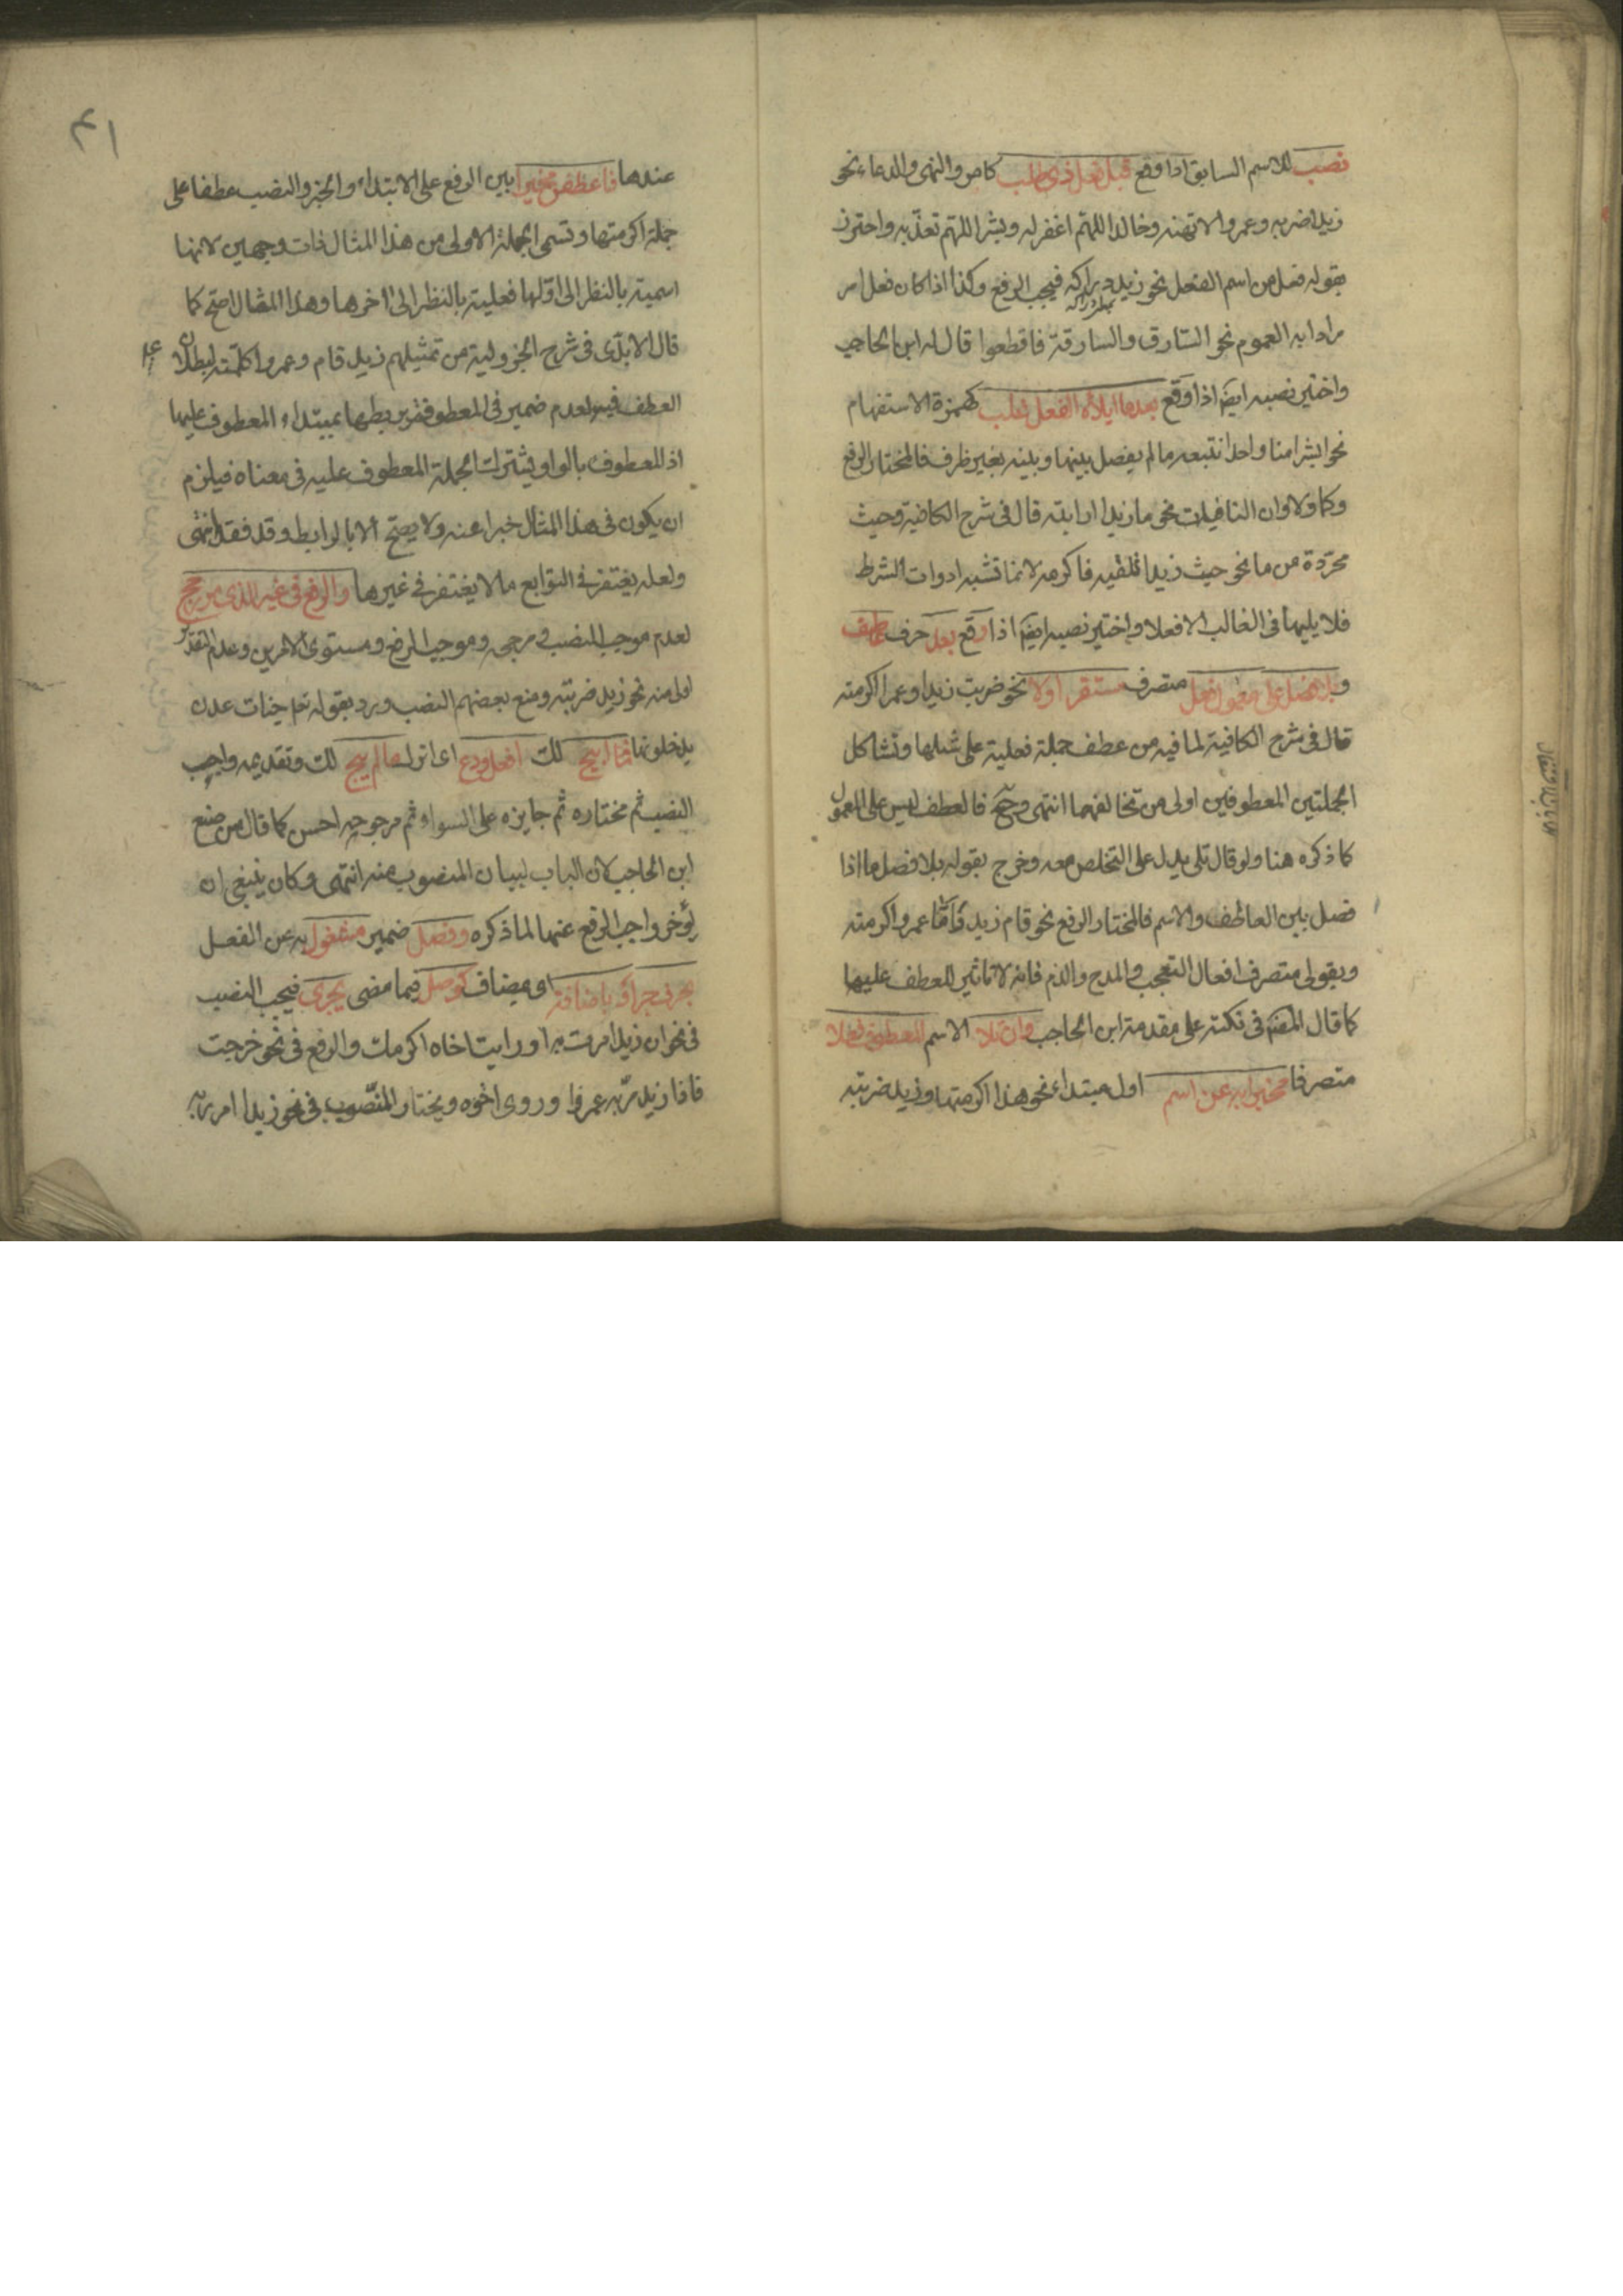 نصب للاسم السابق اذا وقع قبل فعل ذى طلب كامر والنهى والدعاء نحو
زيدا ضربه وعمروا لا تهنه وخالدا اللهم اغفر له وبشرا اللهم تعذبه واحترز
بقوله فعل من اسم الفعل نحو زيد دراكه فيجب الرفع وكذا اذا كان فعل امر
مرادا به العموم نحو السارق والسارقة فاقطعوا قال له ابن الحاجب
واختير نصبه ايضا اذا وقع بعد ما ايلاؤه الفعل غلب كهمزة الاستفهام
نحو ابشرا منا واحدا نتبعه ما لم يفصل بينها وبينه بغير ظرف فالمختار الرفع
وكما ولا وان النافيات نحو ما زيدا رايته قال فى شرح الكافية وحيث
مجردة من ما نحو حيث زيدا تلقيه فاكرمه لانها تشبه ادوات الشرط
فلا يليها فى الغالب الا فعلا واختير نصبه ايضا اذا وقع بعد حرف عاطف
وبلا فصل على معمول فعل متصرف مستقر اولا نحو ضربت زيدا وعمرا اكرمته
قال فى شرح الكافية لما فيه من عطف جملة فعلية على مثلها وتشاكل
الجملتين المعطوفين اولى من تخالفهما انتهى وح فالعطف ليس على المعمول
كما ذكره هنا ولو قال تلى بدل على لتخلص معه وخرج بقوله بلا فصل ما اذا
فصل بين العاطف والاسم فالمختار الرفع نحو قام زيد واما عمرو اكرمته
وبقولى متصرف افعال التعجب والمدح والذم فانه لا تاثير للعطف عليها
كما قال المصنف فى نكته على مقدمة ابن الحاجب وان تلا الاسم المعطوف فعلا
متصرفا مخبرا به عن اسم اول مبتداء نحو هند اكرمتها وزيد ضربته
٤١
عندها فاعطفن مخيرا بين الرفع على الابتداء والخبر والنصب عطفا على
جملة اكرمتها وتسمى الجملة الاولى من هذا المثال ذات وجهين لانها
اسمية بالنظر الى اولها فعلية بالنظر الى اخرها وهذا المثال اصح كما
قال الابدى فى شرح الجزولية من تمثيلهم زيد قام وعمروا كلمته لبطلان
العطف فيه لعدم ضمير فى المعطوفة يربطها بمبتداء المعطوف عليها
اذ المعطوف بالواو يشترك الجملة المعطوف عليه فى معناه فيلزم
ان يكون فى هذا المثال خبرا عنه ولا يصح الا بالرابط وقد فقد انتهى
ولعله يغتفر فى التوابع ما لا يغتفر فى غيرها والرفع فى غير الذى مر رجح
لعدم موجب النصب ومرجحه وموجب الرفع ومستوى الامرين وعدم التقدير
اولى منه نحو زيد ضربته ومنع بعضهم النصب ورد بقوله تعالى جنات عدن
يدخلونها فما ابيح لك افعل ودع اى اترك ما لم يبح لك وتقديمه واجب
النصب ثم مختاره ثم جايزه على السواء ثم مرجوحه احسن كما قال من صنع
ابن الحاجب لان الباب لبيان المنصوب منه انتهى وكان ينبغى ان
يؤخر واجب الرفع عنها لما ذكره وفصل ضمير مشغول به عن الفعل
بحرف جر او باضافة اى مضاف كوصل فيما مضى يجرى فيجب النصب
فى نحو ان زيدا مررت به او رايت اخاه اكرمك والرفع فى نحو خرجت
فاذا زيد مر به عمروا وروى اخوه ويختار المنصوب فى نحو زيدا امرر به